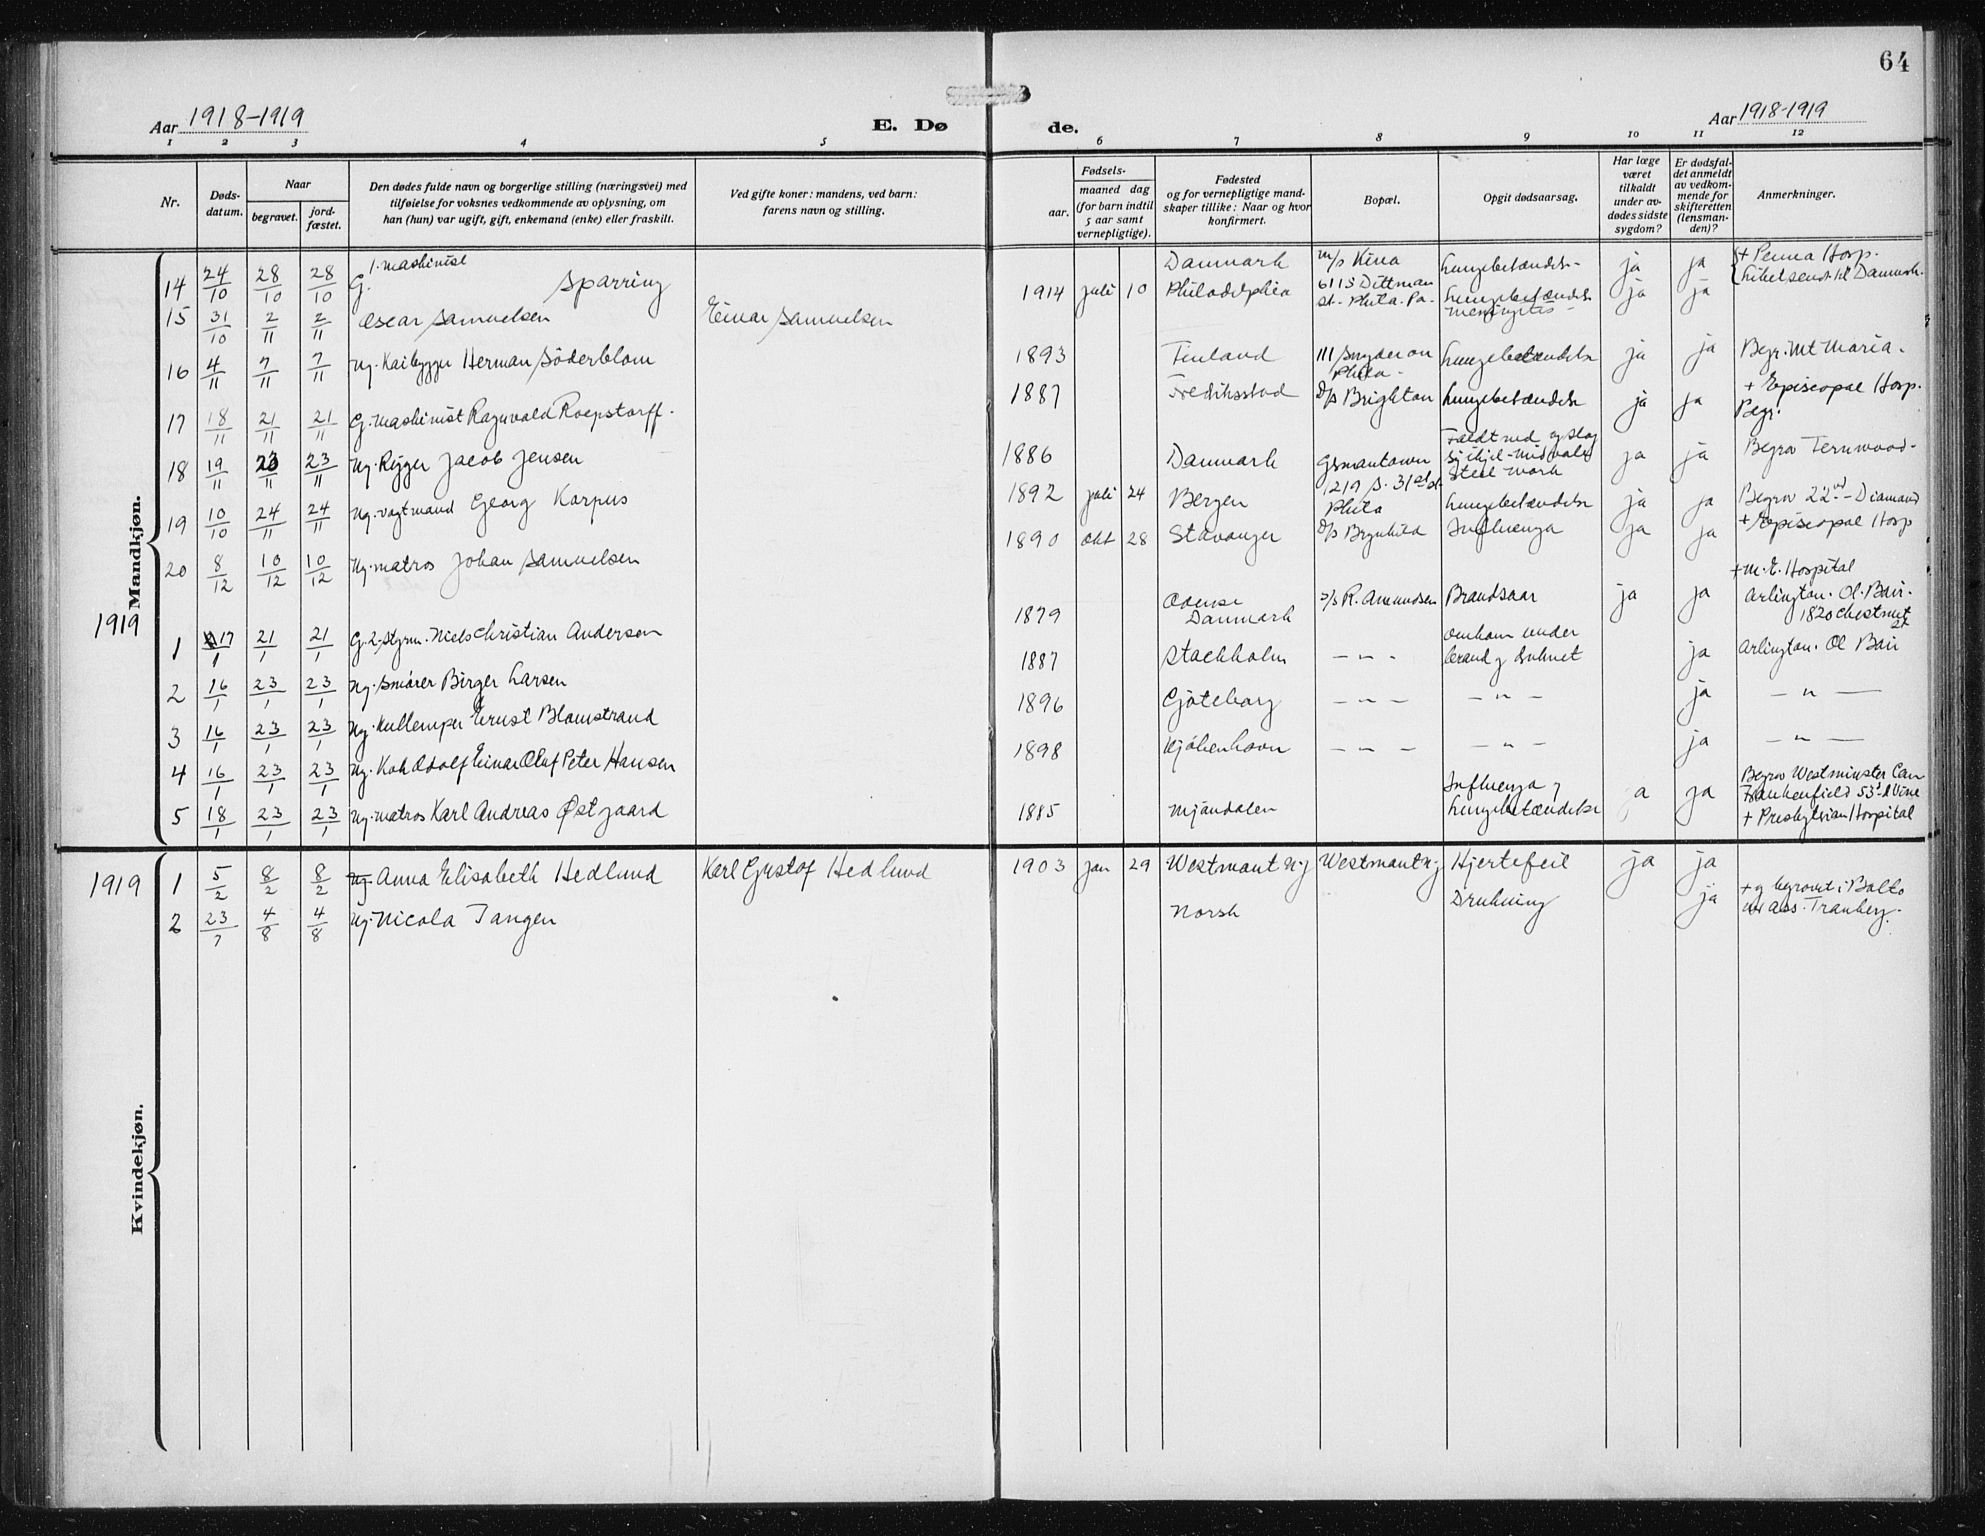 64
Aar 1918-1919
E. Døde.
Aar 1918-1919
1 2 3 4 5 6 7 8 9 10 11 12
Nr.
Døds-datum.
Naar
begravet.
jord-fæstet.
Den dødes fulde navn og borgerlige stilling (næringsvei) med
tilføielse for voksnes vedkommende av oplysning, om
han (hun) var ugift, gift, enkemand (enke) eller fraskilt.
Ved gifte koner: mandens, ved barn:
farens navn og stilling.
Fødsels-
aar.
maaned dag
(for barn indtil
5 aar samt
vernepligtige).
Fødested
og for vernepligtige mand-
skaper tillike: Naar og hvor
konfirmert.
Bopæl.
Opgit dødsaarsag.
Har læge
været
tilkaldt
under av-
dødes sidste
sygdom?
Er dødsfal-
det anmeldt
av vedkom-
mende for
skifteretten
(lensman-
den)?
Anmerkninger.
Mandkjøn.
14 24/10 28/10 28/10 G. 1. maskinist Sparring Danmark m/s Kina Lungebetændelse ja ja + Penna Hosp. Liket sendt til Danmark.
15 31/10 2/11 2/11 Oscar Samuelsen Einar Samuelsen 1914 juli 10 Philadelphia 6115 Dittman St. Phila. Pa. Lungebetændelse meningitis ja ja
16 4/11 7/11 7/11 Ug. Herman Söderblom 1893 Finland 111 Snyder av Phila. Lungebetændelse ja ja Begr. Mt Maria.
17 18/11 21/11 21/11 G. maskinist Ragnvald Roepstorff. 1887 Fredriksstad D/s Brighton Lungebetændelse ja ja + Episcopal Hosp. Begr.
18 19/11 23/11 23/11 Ug. Rigger Jacob Jensen 1886 Danmark Germantown Faldt ned og slog sig ihjel - Midvale Steel work ja ja Begrav Fernwood.
19 10/10 24/11 24/11 Ug. vagtmand Georg Karpus 1892 juli 24 Bergen 1219 S. 31st st. Phila Lungebetændelse ja ja Begrav 22nd - Diamond
20 8/12 10/12 10/12 Ug. matros Johan Samuelsen 1890 okt 28 Stavanger D/s Brynhild Influenza ja ja + Episcopal Hosp
1919
1 17/1 21/1 21/1 G. 2. Styrm. Niels Christian Andersen 1879 Odense Danmark s/s R. Amundsen Brandsaar ja ja + M. E. Hospital Arlington. Ol. Bair. 1820 Chestnut st
2 16/1 23/1 23/1 Ug. Smörer Birger Larsen 1887 Stockholm — " — omkom under brand ja Arlington. Ol Bair
3 16/1 23/1 23/1 Ug. Kullemper Ernst Blomstrand 1896 Gjöteborg — " — — " — ja — " —
4 16/1 23/1 23/1 Ug. Kok Adolf Einar Oluf Peter Hansen 1898 Kjöbenhavn — " — — " — ja — " —
5 18/1 23/1 23/1 Ug. matros Karl Andreas Østgaard 1885 Mjöndalen Influenza og Lungebetændelse ja Begrav Westminster Cem Frankenfield 53d & Vine + Presbyterian Hospital
Kvindekjøn.
1919
1 5/2 8/2 8/2 Ug. Anna Elisabeth Hedlund Karl Gustof Hedlund 1903 jan 29 Westmont N.J Westmont N.J Hjertefeil ja ja
2 23/7 4/8 4/8 Ug. Nicola Tangen Norsk Drukning ja + og begravet i Balto av ass. Tranberg.